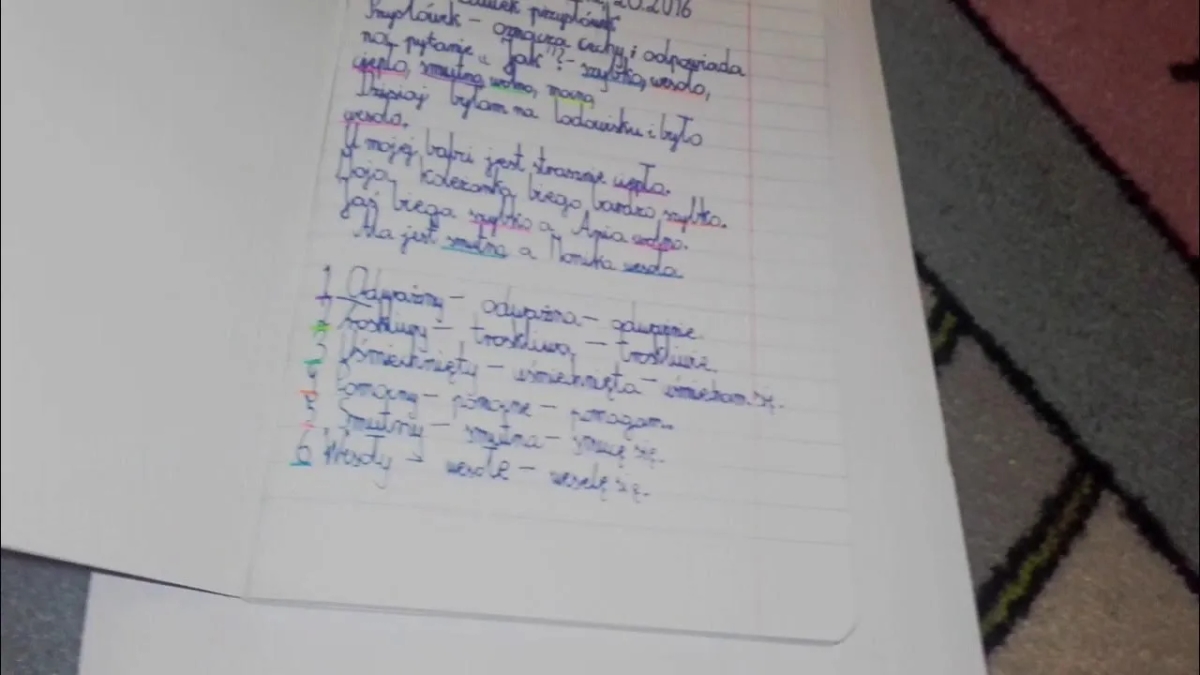 przysłówek 2016
Przysłówek – oznacza cechy i odpowiada
na pytanie „Jak"? – szybko, wesoło,
ciepło, smutno, wolno,
Dzisiaj byłam na lodowisku i było
wesoło.
U mojej babci jest strasznie ciepło.
Moja koleżanka biega bardzo szybko.
Jaś biega szybko a Ania wolno.
Ala jest smutna a Monika wesoła
1 Odważny – odważna – odważnie.
2 Troskliwy – troskliwa – troskliwie.
3 Uśmiechnięty – uśmiechnięta – uśmiecham się.
4 Pomocny – pomocne – pomagam..
5, Smutny – smutna – smucę się.
6 Wesoły – wesołe – weselę się.